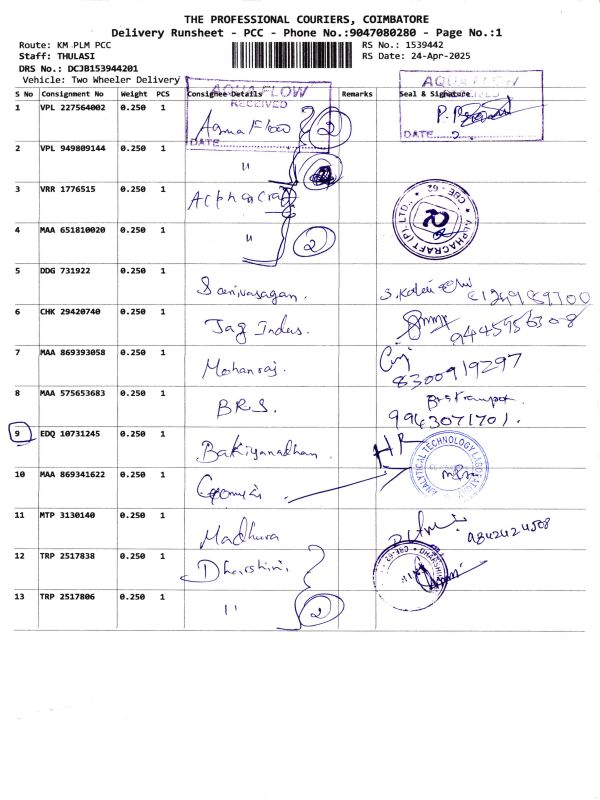 THE PROFESSIONAL COURIERS, COIMBATORE
Delivery Runsheet - PCC - Phone No.:9047080280 - Page No.:1
Route: KM PLM PCC RS No.: 1539442
Staff: THULASI RS Date: 24-Apr-2025
DRS No.: DCJB153944201
Vehicle: Two Wheeler Delivery
AQUA FLOW AQUA FLOW
S No Consignment No Weight PCS Consignee Details Remarks Seal & Signature
RECEIVED
1 VPL 227564002 0.250 1 Aqua Flow 2
DATE DATE
2 VPL 949809144 0.250 1 "
3 VRR 1776515 0.250 1 Alphacraft ALPHACRAFT (P) LTD., CBE - 62
4 MAA 651810020 0.250 1 " 2
5 DDG 731922 0.250 1 Sanivasagan.
6 CHK 29420740 0.250 1 Jag Indus. 9445956308
7 MAA 869393058 0.250 1 Mohanraj. 8300919297
8 MAA 575653683 0.250 1 BRS. 9963071701.
9 EDQ 10731245 0.250 1 Bakiyanadhan. HR
ANALYTICAL TECHNOLOGY
10 MAA 869341622 0.250 1
11 MTP 3130140 0.250 1 Madhura 9842424508
12 TRP 2517838 0.250 1 Dharshini
13 TRP 2517806 0.250 1 " 2